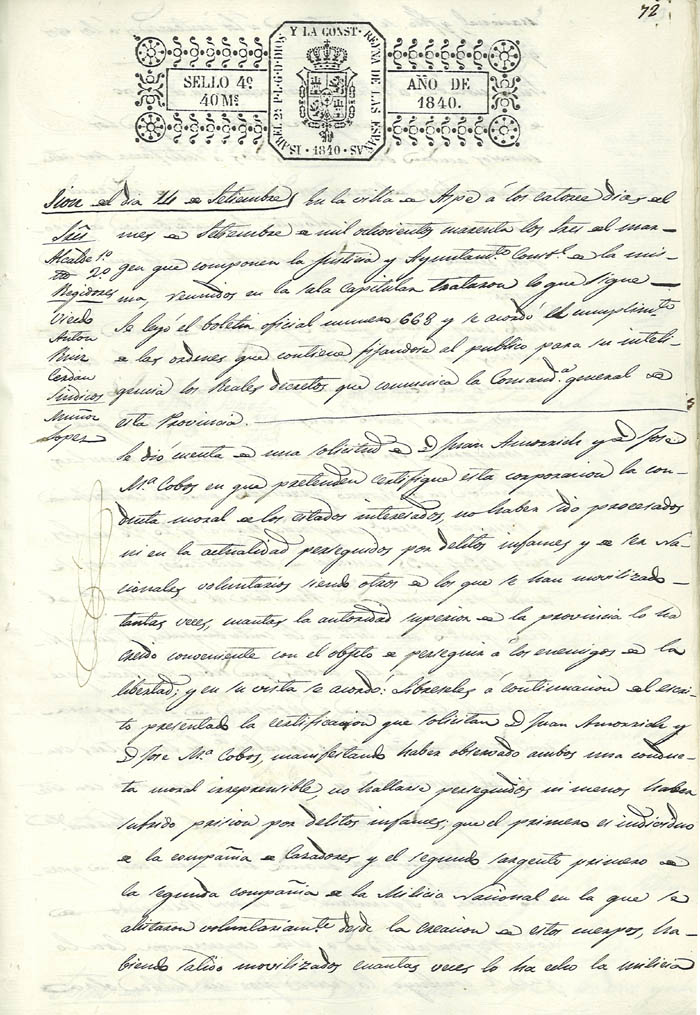 72
SELLO 4º
40 Ms
ISABEL 2ª P. L. G. D. DIOS Y LA CONST. REYNA DE LAS ESPAÑAS
· 1840 ·
AÑO DE
1840.
Sion el dia 14 de Setiembre
Sres
Alcalde 1º
2º
Regidores
Oviedo
Anton
Ruiz
Cerdan
Sindicos
Muñoz
Lopez
En la villa de Aspe á los catorce dias del
mes de Setiembre de mil ochocientos cuarenta los Sres del mar-
gen que componen la Justicia y Ayuntamto Constl de la mis-
ma, reunidos en la Sala Capitular trataron lo que sigue
Se leyó el boletin oficial numero 668 y se acordó el cumplimto
de las ordenes que contiene fijandose al publico para su inteli-
gencia los Reales decretos que comunica la Comanda general de
esta Provincia.
Se dió cuenta de una solicitud de D. Juan Amorrich y D. Jose
Mª Cobos en que pretenden certifique esta corporacion la con-
ducta moral de los citados interesados, no haber sido procesados
ni en la actualidad perseguidos por delitos infames y de ser Na-
cionales voluntarios siendo otros de los que se han movilizado
tantas veces, cuantas la autoridad superior de la provincia lo ha
creido conveniente con el objeto de perseguir á los enemigos de la
libertad; y en su vista se acordó: Libreseles á continuacion del escri-
to presentado la certificacion que solicitan D. Juan Amorrich y
D. Jose Mª Cobos, manifestando haber observado ambos una conduc-
ta moral irreprensible, no hallarse perseguidos ni menos haber
sufrido prision por delitos infames, que el primero es individuo
de la compañia de Cazadores y el segundo sargento primero de
la segunda compañia de la Milicia Nacional en la que se
alistaron voluntariamte desde la creacion de estos cuerpos, ha-
biendo salido movilizados cuantas veces lo ha echo la milicia